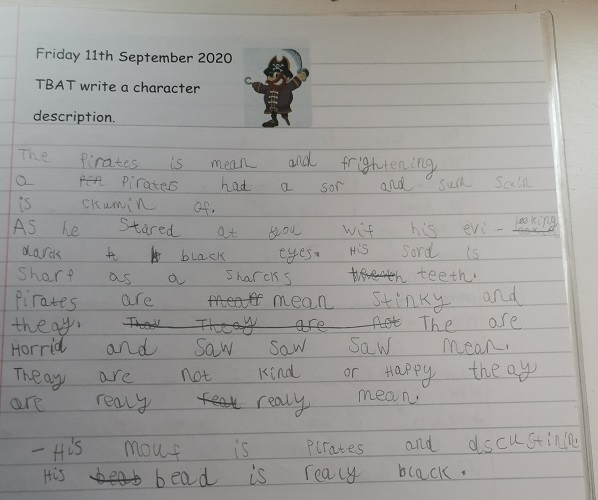 Friday 11th September 2020
TBAT write a character
description.
The Pirates is mean and frightening
a Pirates had a sor and sum Scin
is skumin of.
AS he Stared at you wif his evi-looking
darck black eyes. His Sord is
Sharp as a Sharcks teeth.
Pirates are mean Stinky and
theay. Theay are not The are
Horrid and Saw Saw Saw mean.
Theay are not Kind or HAPPY theay
are realy realy mean.
- His mouf is Pirates and dscustinin
His bead is realy black.